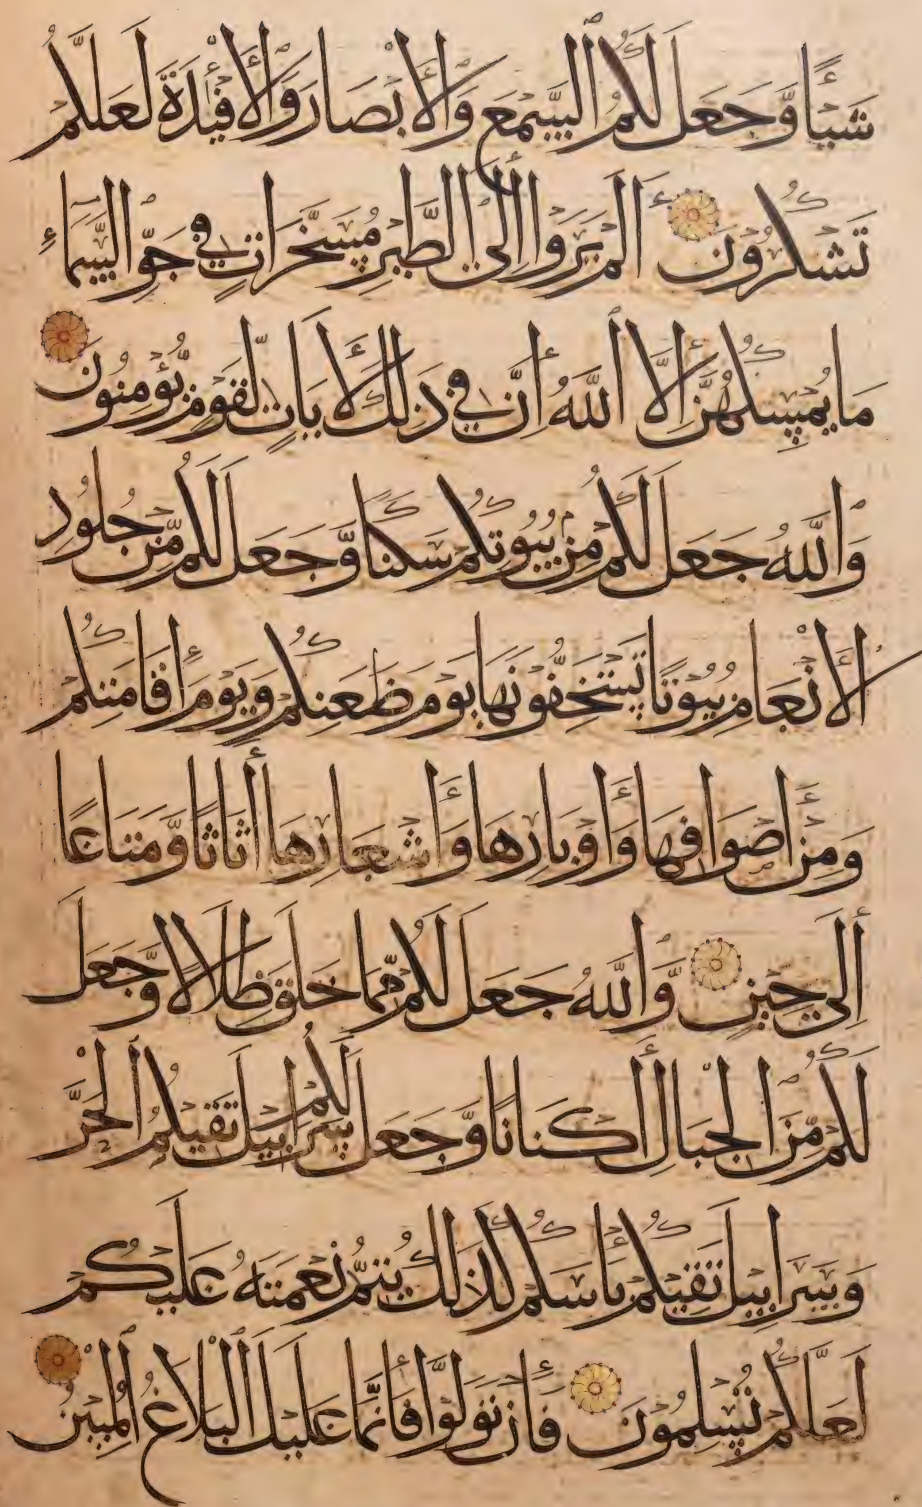 شَيْـًٔا وَّجَعَلَ لَكُمُ السَّمْعَ وَالْاَبْصَارَ وَالْاَفْـِٔدَةَ لَعَلَّكُمْ
تَشْكُرُوْنَ اَلَمْ يَرَوْا اِلَى الطَّيْرِ مُسَخَّرَاتٍ فِىْ جَوِّ السَّمَاءِ
مَا يُمْسِكُهُنَّ اِلَّا اللّٰهُ اِنَّ فِىْ ذَلِكَ لَاٰيَاتٍ لِّقَوْمٍ يُّؤْمِنُوْنَ
وَاللّٰهُ جَعَلَ لَكُمْ مِنْ بُيُوْتِكُمْ سَكَنًا وَّجَعَلَ لَكُمْ مِّنْ جُلُوْدِ
الْاَنْعَامِ بُيُوْتًا تَسْتَخِفُّوْنَهَا يَوْمَ ظَعْنِكُمْ وَيَوْمَ اِقَامَتِكُمْ
وَمِنْ اَصْوَافِهَا وَاَوْبَارِهَا وَاَشْعَارِهَا اَثَاثًا وَّمَتَاعًا
اِلَى حِيْنٍ وَّاللّٰهُ جَعَلَ لَكُمْ مِّمَّا خَلَقَ ظِلَالًا وَّجَعَلَ
لَكُمْ مِّنَ الْجِبَالِ اَكْنَانًا وَّجَعَلَ لَكُمْ سَرَابِيْلَ تَقِيْكُمُ الْحَرَّ
وَسَرَابِيْلَ تَقِيْكُمْ بَاْسَكُمْ كَذَلِكَ يُتِمُّ نِعْمَتَهُ عَلَيْكُمْ
لَعَلَّكُمْ تُسْلِمُوْنَ فَاِنْ تَوَلَّوْا فَاِنَّمَا عَلَيْكَ الْبَلَاغُ الْمُبِيْنُ